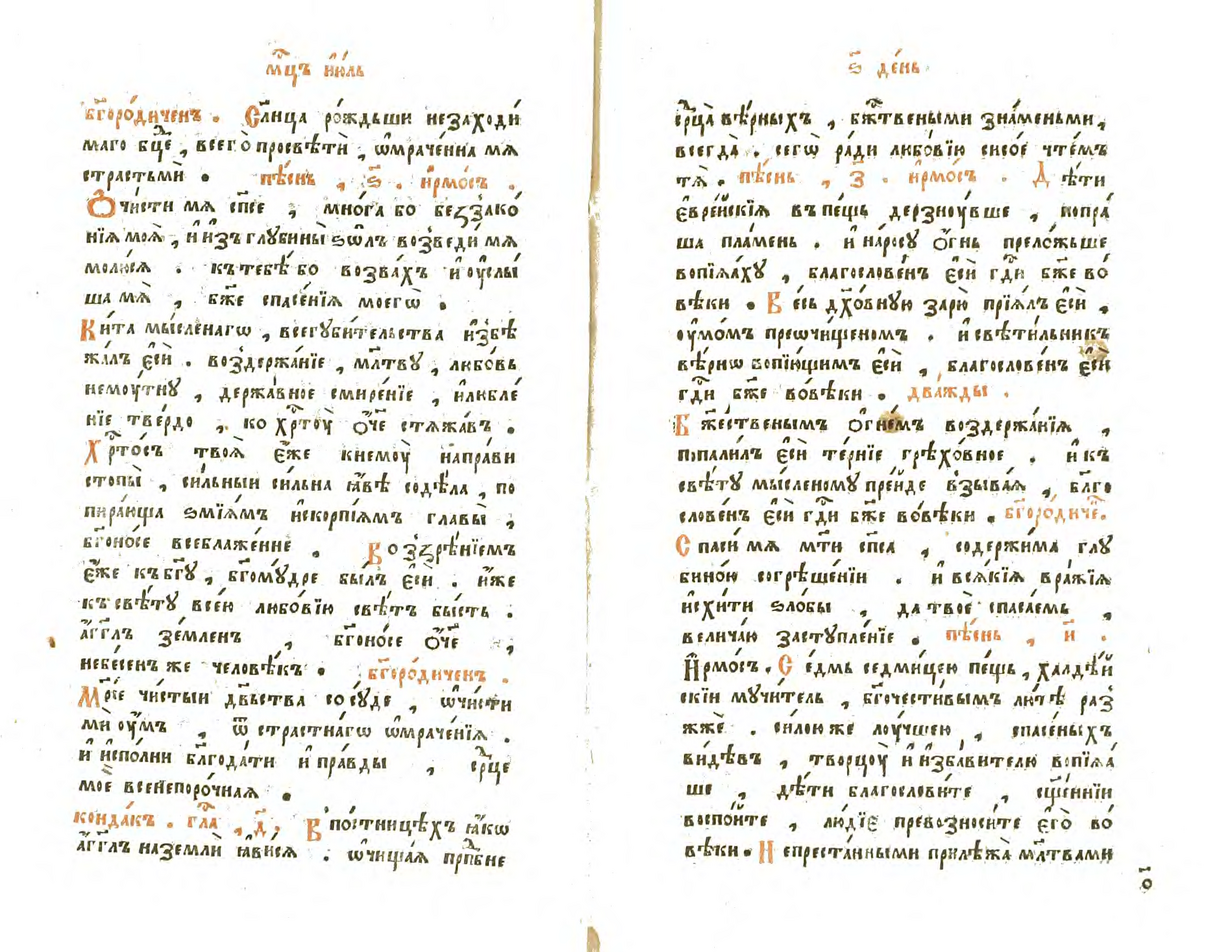 мц҃ъ ію́ль
бг҃оро́диченъ . Сл҃нца ро́ждьши незаходи́
маго бц҃е , всего̀ просвѣтѝ , ѡ҆мраче́нна мѧ
страстьмѝ . пѣ́снь , ѕ҃ . і҆рмо́съ .
Ѻ҆чи́сти мѧ сп҃се , мно́га бо беззако́
нїѧ моѧ̀ , и҆ и҆зъ глубины̀ ѕѡ́лъ возведи́ мѧ
молю́сѧ . къ тебѣ́ бо возва́хъ и҆ ѹ҆слы́
ша мѧ̀ , бж҃е спасе́нїѧ моегѡ̀ .
Ки́та мы́сленагѡ , всегуби́тельства и҆збѣ
жа́лъ є҆сѝ . воздержа́нїе , мл҃тву , любо́вь
немо́утну , держа́вное смире́нїе , и҆ и҆збле́
нїе тве́рдо , ко хр҃тоу̀ ѻ҆́ч҃е стѧжа́въ .
Хр҃то́съ твоѧ̀ є҆́же кнемоу̀ напра́ви
стопы̀ , си́льныи си́льна ꙗ҆́вѣ содѣ́ла , по
пира́юща ѕмїѧ́мъ и҆скорпїѧ́мъ главы̀ ,
бг҃оно́се всеблаже́нне . Воззрѣ́нїемъ
є҆́же къ бг҃у , бг҃ому́дре бы́лъ є҆сѝ . и҆́же
къ свѣ́ту все́ю любо́вїю свѣ́тъ бы́сть .
а҆́гг҃лъ зе́мленъ , бг҃оно́се ѻ҆́ч҃е ,
небе́сенъ же человѣ́къ . бг҃оро́диченъ .
Мр҃їе чи́стыи дв҃ьства сосу́де , ѡ҆чи́сти
мѝ ѹ҆́мъ , ѿ стра́стнагѡ ѡ҆мраче́нїѧ .
и҆ и҆спо́лни бл҃года́ти и҆ пра́вды , ср҃це
моѐ всенепоро́чнаѧ .
конда́къ . гла҃ , д҃ , В по́стницѣхъ ꙗ҆́кѡ
а҆́гг҃лъ на землѝ ꙗ҆ви́сѧ . ѡ҆чища́ѧ прп҃бне
ѕ҃ де́нь
ср҃ца̀ вѣ́рныхъ , бж҃твеными зна́меньми ,
всегда̀ . сегѡ̀ ра́ди любо́вїю сисо́е чте́мъ
тѧ̀ . пѣ́снь , з҃ . і҆рмо́съ . Дѣ́ти
є҆вре́йскїѧ в пе́щь дерзноу́вше , попра́
ша пла́мень . и҆ на́росу ѻ҆́гнь прело́жьше
вопїѧ́ху , благослове́нъ є҆сѝ гд҃и бж҃е во́
вѣки . Ве́сь дх҃о́вную зарю̀ прїѧ́лъ є҆сѝ ,
ѹ҆мо́мъ преѡчи́щеномъ . и҆ свѣти́льникъ
вѣ́рнѡ вопїю́щимъ є҆сѝ , благослове́нъ є҆сѝ
гд҃и бж҃е во́вѣки . два́жды .
Бж҃ественымъ ѻ҆гне́мъ воздержа́нїѧ ,
попали́лъ є҆сѝ те́рнїе грѣхо́вное . и҆ къ
свѣ́ту мы́сленому пре́йде взыва́ѧ , бл҃го
слове́нъ є҆сѝ гд҃и бж҃е во́вѣки . бг҃оро́диче .
Спаси́ мѧ мт҃и сп҃са , содержи́ма глу
бино́ю согрѣше́нїи . и҆ всѧ́кїѧ вра́жїѧ
и҆схи́ти ѕло́бы , да твоѐ спаса́емь ,
велича́ю заступле́нїе . пѣ́снь , и҃ .
І҆рмо́съ . Се́дмь седми́цею пе́щь , халдѣ́й
скїи мучи́тель , бг҃очести́вымъ лю́тѣ раз
жжѐ . си́лою же лоу́чшею , спасе́ныхъ
ви́дѣвъ , творцоу̀ и҆ и҆зба́вителю вопїѧ́
ше , дѣ́ти благослови́те , сщ҃е́ннїи
воспо́йте , лю́дїє превозноси́те є҆го̀ во́
вѣки . Непреста́нными прилѣжа̀ мл҃твами
о҃